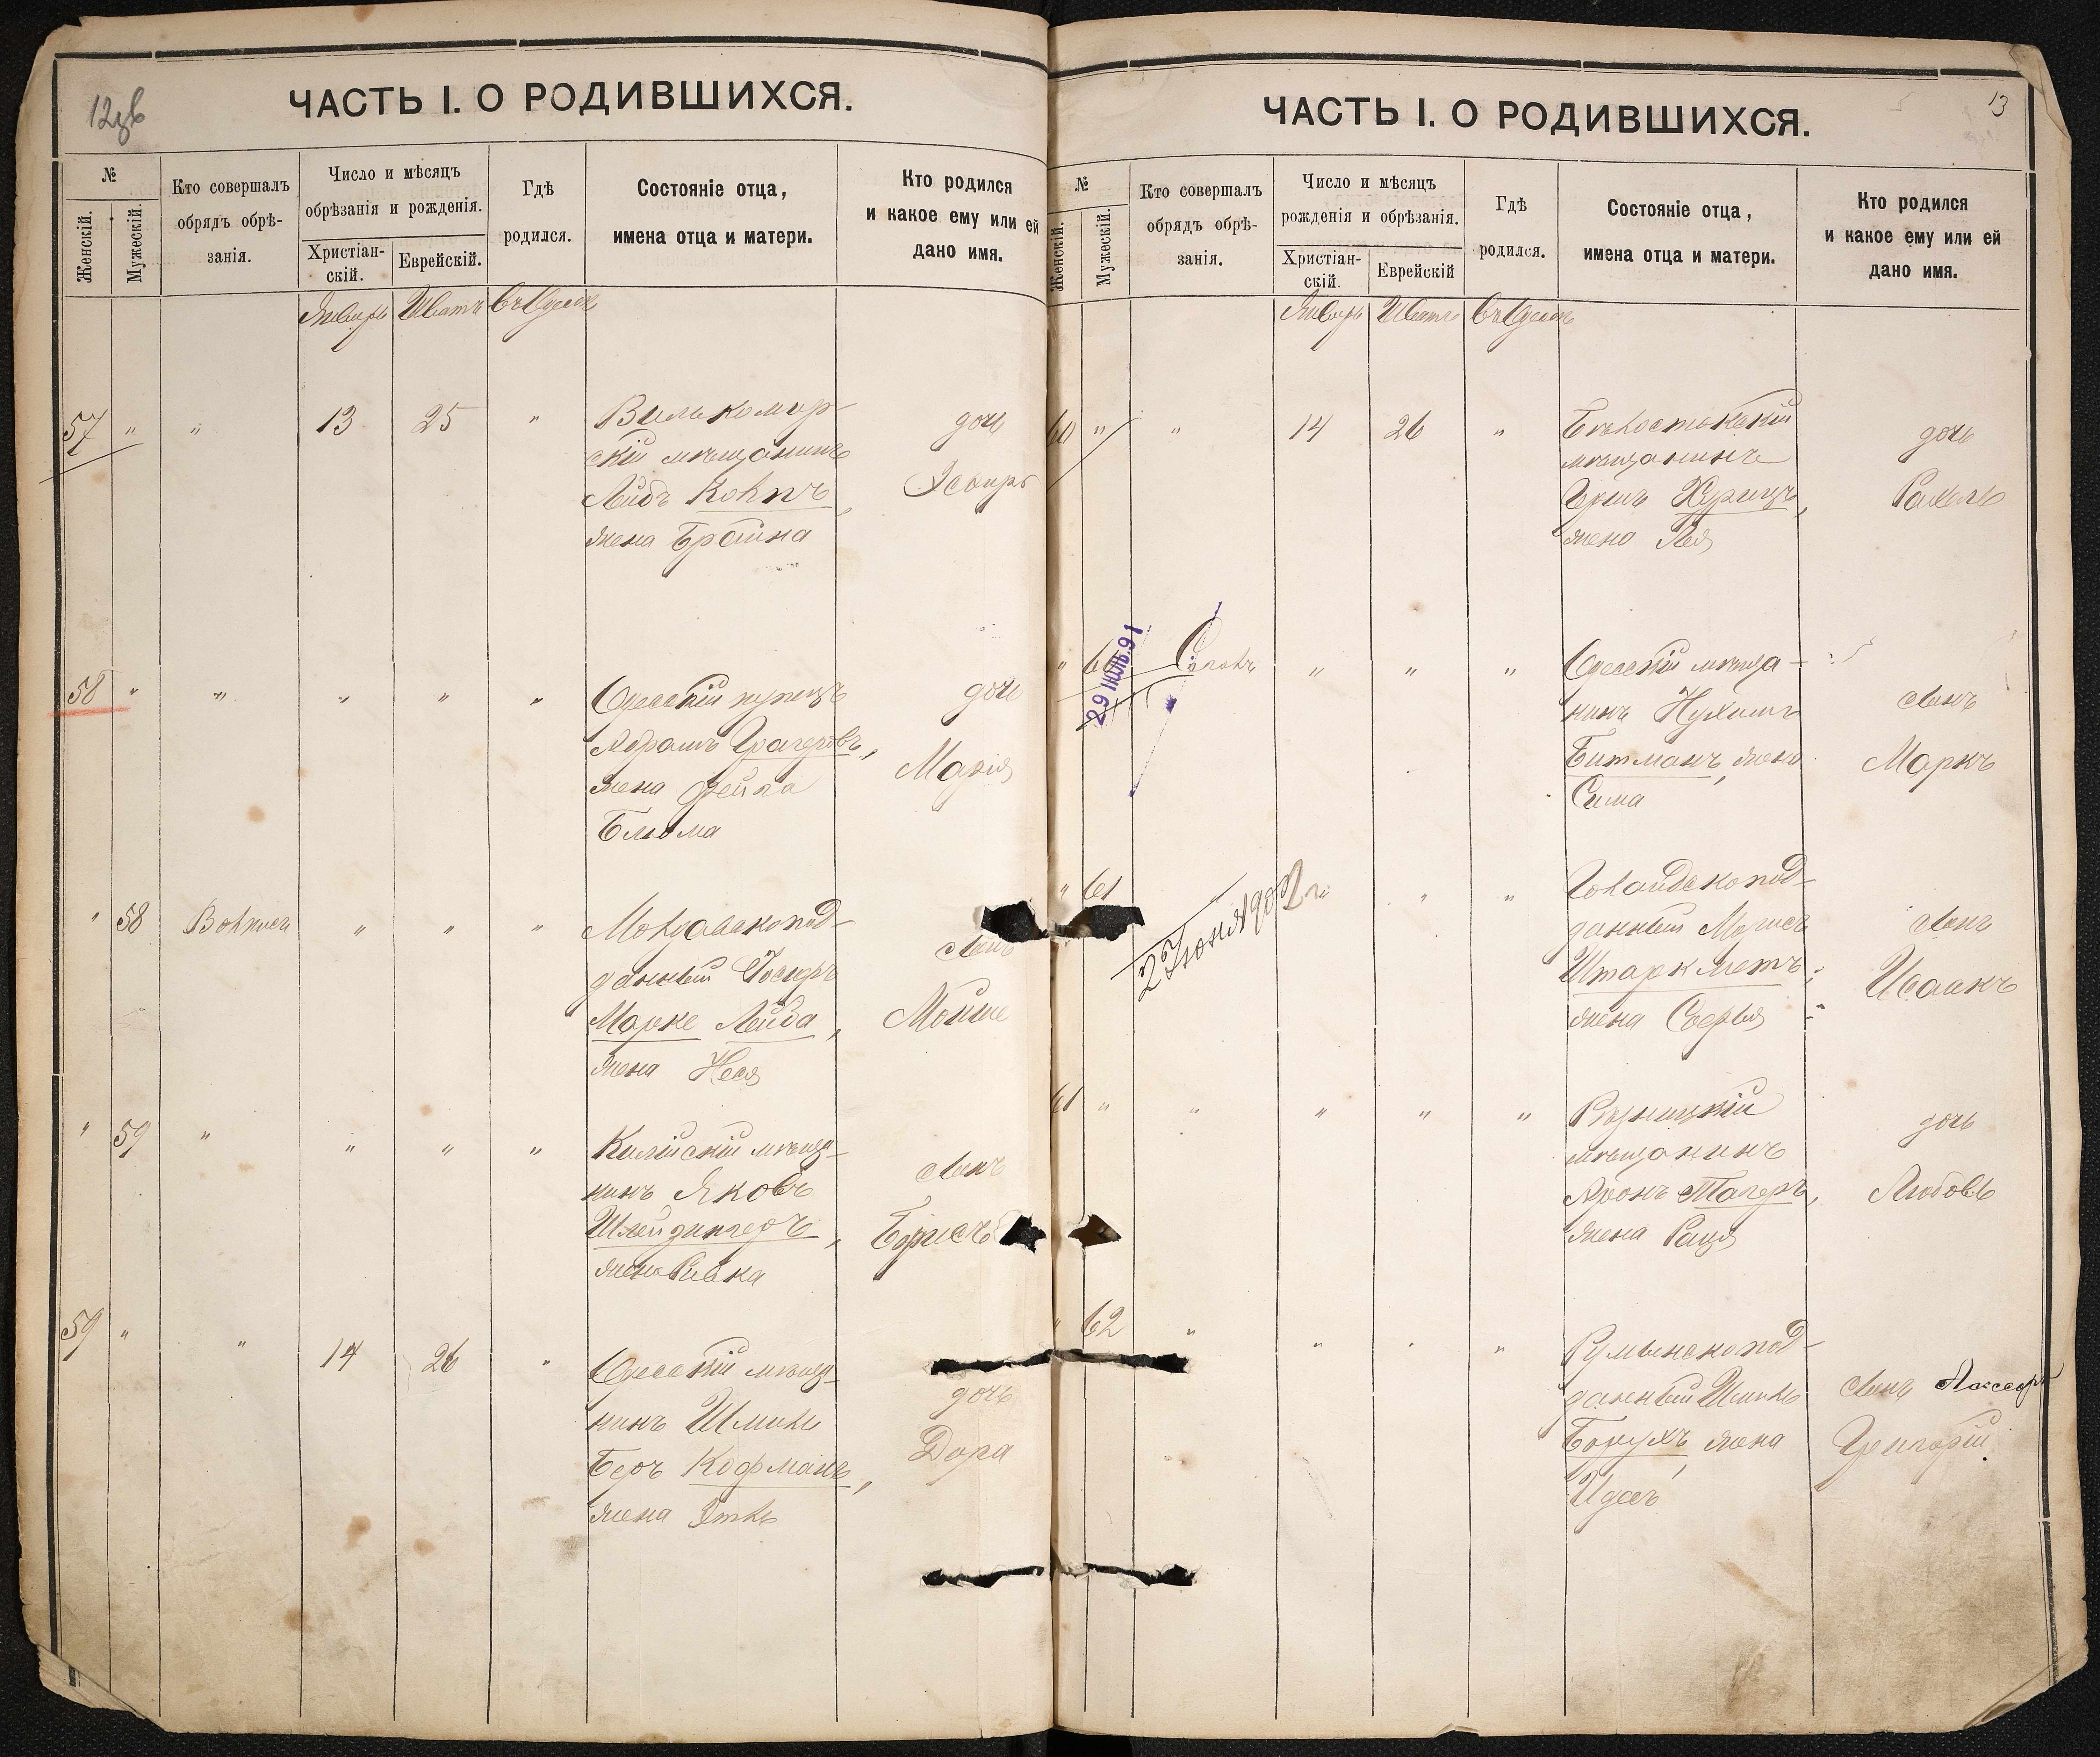 12зв
ЧАСТЬ I. О РОДИВШИХСЯ.
№
Женскій.
Мужескій.
Кто совершалъ
обрядъ обрѣ-
занія.
Число и мѣсяцъ
обрѣзанія и рожденія.
Христіан-
скій.
Еврейскій.
Гдѣ
родился.
Состояніе отца,
имена отца и матери.
Кто родился
и какое ему или ей
дано имя.
Январь Шватъ Въ Одессѣ
57 " " 13 25 " Вилькомир-
скій мѣщанинъ
Лейбъ
жена Брайна
дочь
Эсѳирь
58 " " " " " Одесскій купецъ
Абрамъ
жена Фейга
Блюма
дочь
Марія
" 58 " " "
данный
Марке Лейба,
жена Неся
сынъ
Мойше
" 59 " " " " Калишскій мѣща-
нинъ Яковъ
жена Ривка
сынъ
Борисъ
59 " " 14 26 " Одесскій мѣща-
нинъ Шмиль
Беръ Кофманъ,
жена Этль
дочь
Дора
13
ЧАСТЬ I. О РОДИВШИХСЯ.
№
Женскій.
Мужескій.
Кто совершалъ
обрядъ обрѣ-
занія.
Число и мѣсяцъ
рожденія и обрѣзанія.
Христіан-
скій.
Еврейскій
Гдѣ
родился.
Состояніе отца,
имена отца и матери.
Кто родился
и какое ему или ей
дано имя.
Январь Шватъ Въ Одессѣ
60 " " 14 26 " Бѣлостокскій
мѣщанинъ
Гершъ Хурицъ,
жена Лея
дочь
Рахель
" 60 " " " Одесскій мѣща-
нинъ Нухимъ
Битманъ, жена
Сима
сынъ
Маркъ
29 ІЮЛЬ. 91
" 61 " "
данный Морисъ
Штаркметъ,
жена Софья
сынъ
Исаакъ
61 " " " " "
мѣщанинъ
Аронъ Тагеръ,
жена
дочь
Любовь
" 62 " " " " Румынско под-
данный
Борухъ, жена
Идесъ
сынъ
Григорій.